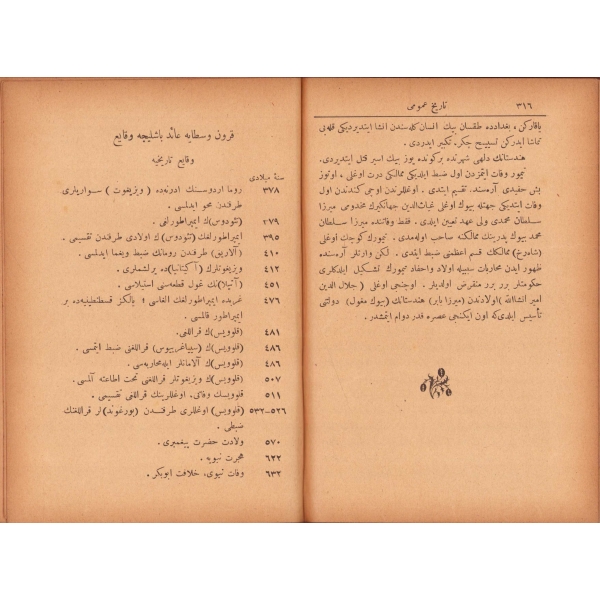 ٣١٦
تاريخ عمومى
باقاركن ، بغدادده طقسان بيك انسان كله‌سندن انشا ايتديرديكى قله‌ى
تماشا ايدركن تسبيح چكر. تكبير ايدردى .
هندستانك دلهى شهرنده بركونده يوز بيك اسير قتل ايتديردى.
تيمور وفات ايتمزدن اول ضبط ايلديكى ممالكى درت اوغلى ، اوتوز
بش حفيدى آره‌سنده تقسيم ايتدى . اوغللرندن اوجى كندندن اول
وفات ايتديكى جهتله بيوك اوغلى غياث‌الدين جهانكيرك مخدومى ميرزا
سلطان محمدى ولى عهد تعيين ايلدى . فقط وفاتنده ميرزا سلطان
محمد بيوك پدرينك ممالكنه صاحب اوله‌مدى . تيمورك كوچك اوغلى
(شاه‌رخ) ممالكك قسم اعظمنى ضبط ايتدى . لكن وارثلر آره‌سنده
ظهور ايدن محاربات سببيله اولاد واحفاد تيمورك تشكيل ايلدكلرى
حكومتلر برر برر منقرض اولديلر . اوچنجى اوغلى (جلال الدين
اميرانشاالله) اولادندن (ميرزا بابر) هندستانده (بيوك مغول) دولتنى
تأسيس ايلدى‌كه اون ايكنجى عصره قدر دوام ايتمشدر .
قرون وسطايه عائد باشليجه وقايع
وقايع تاريخيه
سنهٔ ميلادى
٣٧٨ روما اردوسنك ادرنه‌ده (ويزيغوت) سواريلرى
طرفندن محو ايدلسى .
٢٧٩ (تئودوس)ك ايمپراطورلغى .
٣٩٥ ايمپراطورلغك (تئودوس)ك اولادى طرفندن تقسيمى .
٤١٠ (آلاريق) طرفندن رومانك ضبط ويغما ايدلسى .
٤١٢ ويزيغوتلرك (آكيتانيا)ده يرلشملرى .
٤٥١ (آتيلا)نك غول قطعه‌سنى استيلاسى .
٤٧٦ غربده ايمپراطورلغك الغاسى ؛ يالكز قسطنطينيه‌ده بر
ايمپراطور قالمسى .
٤٨١ (قلوويس)ك قراللغى.
٤٨٦ (قلوويس)ك (سيياغريوس) قراللغنى ضبط ايتمسى .
٤٨٦ (قلوويس)ك آلامانلر ايله‌محاربه‌سى .
٥٠٧ (قلوويس)ك ويزيغوتلر قراللغنى تحت اطاعته آلمسى .
٥١١ قلوويسك وفاتى. اوغللرينك قراللغى تقسيمى .
٥٢٦-٥٣٢ (قلوويس) اوغللرى طرفندن (بورغوند)لر قراللغنك
ضبطى .
٥٧٠ ولادت حضرت پيغمبرى .
٦٢٢ هجرت نبويه .
٦٣٢ وفات نبوى، خلافت ابوبكر .